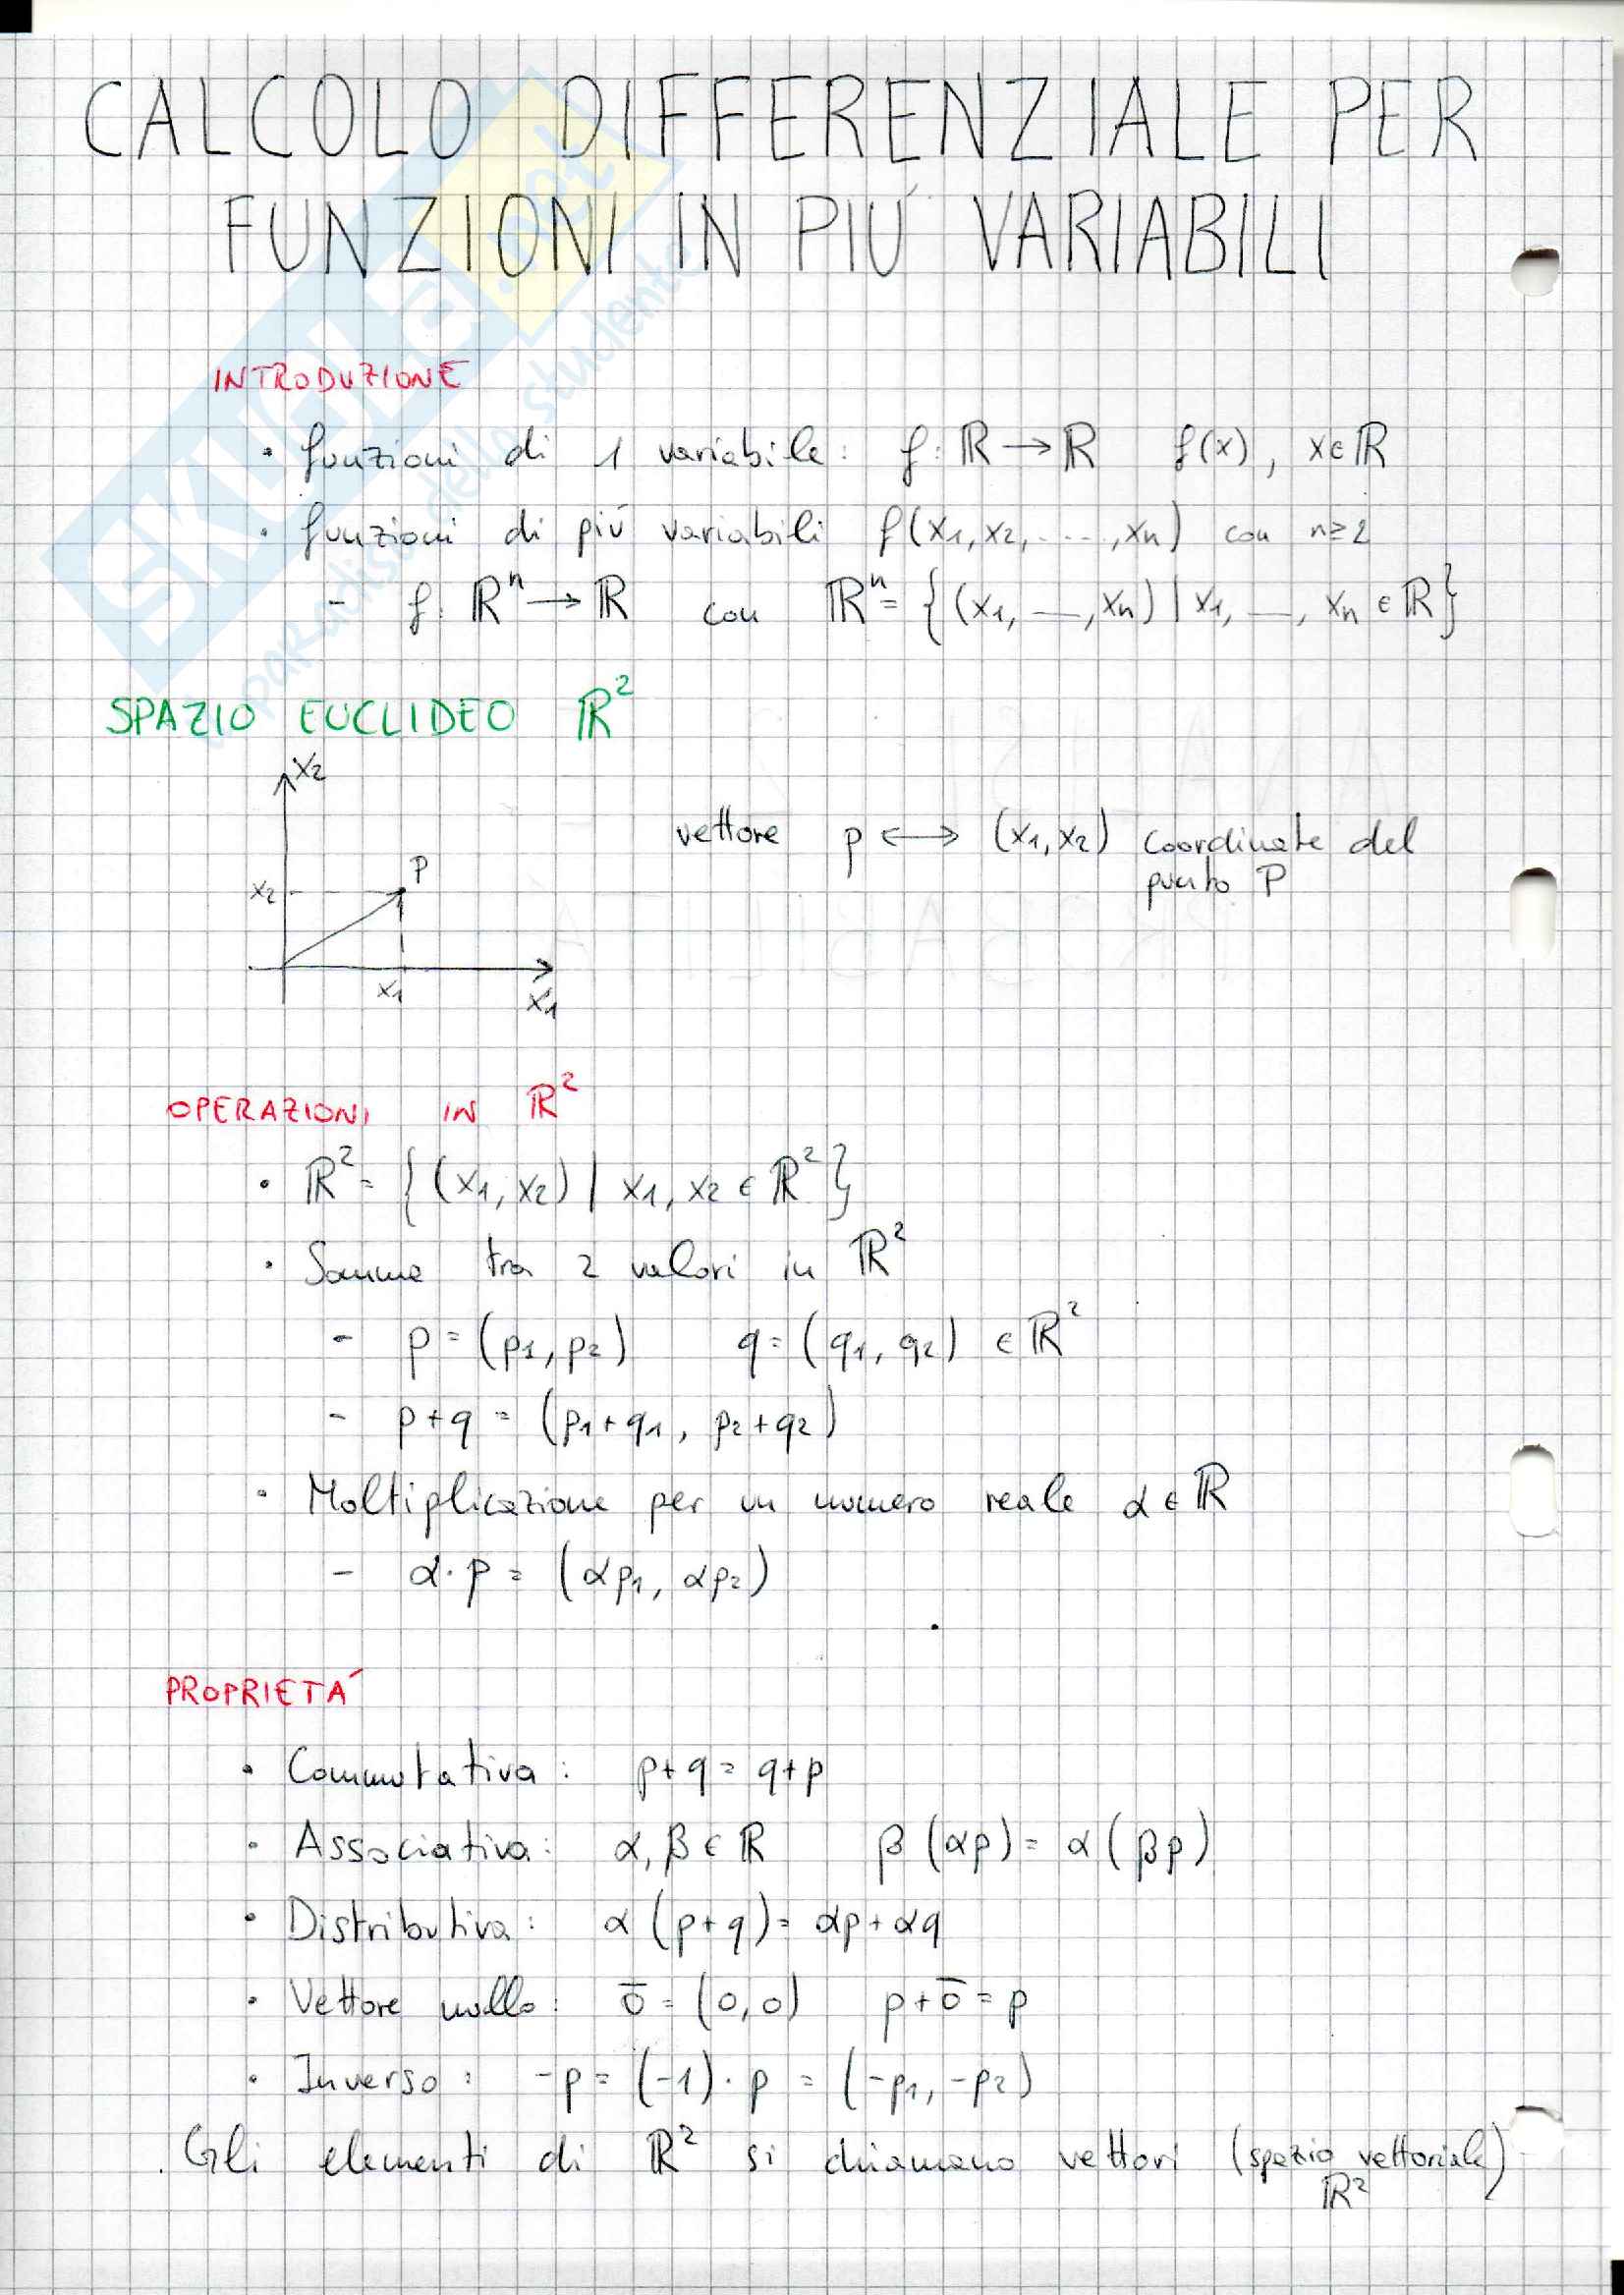 CALCOLO DIFFERENZIALE PER
FUNZIONI IN PIÚ VARIABILI
SKUOLA.net
il paradiso dello studente
INTRODUZIONE
• funzioni di 1 variabile: f: ℝ → ℝ f(x), x ∈ ℝ
• funzioni di piú variabili f(x₁, x₂, ...., xₙ) con n ≥ 2
- f: ℝⁿ → ℝ con ℝⁿ = {(x₁, —, xₙ) | x₁, —, xₙ ∈ ℝ}
SPAZIO EUCLIDEO ℝ²
x₂
vettore p ⟷ (x₁, x₂) coordinate del
punto P
P
x₂
x₁ x₁
OPERAZIONI IN ℝ²
• ℝ² = {(x₁, x₂) | x₁, x₂ ∈ ℝ²}
• Somma tra 2 valori in ℝ²
- p = (p₁, p₂) q = (q₁, q₂) ∈ ℝ²
- p+q = (p₁+q₁, p₂+q₂)
• Moltiplicazione per un numero reale α ∈ ℝ
- α·p = (αp₁, αp₂)
PROPRIETÁ
• Commutativa: p+q = q+p
• Associativa: α, β ∈ ℝ β(αp) = α(βp)
• Distributiva: α(p+q) = αp+αq
• Vettore nullo: o̅ = (0,0) p+o̅ = p
• Inverso: -p = (-1)·p = (-p₁, -p₂)
. Gli elementi di ℝ² si chiamano vettori (spazio vettoriale)
ℝ²